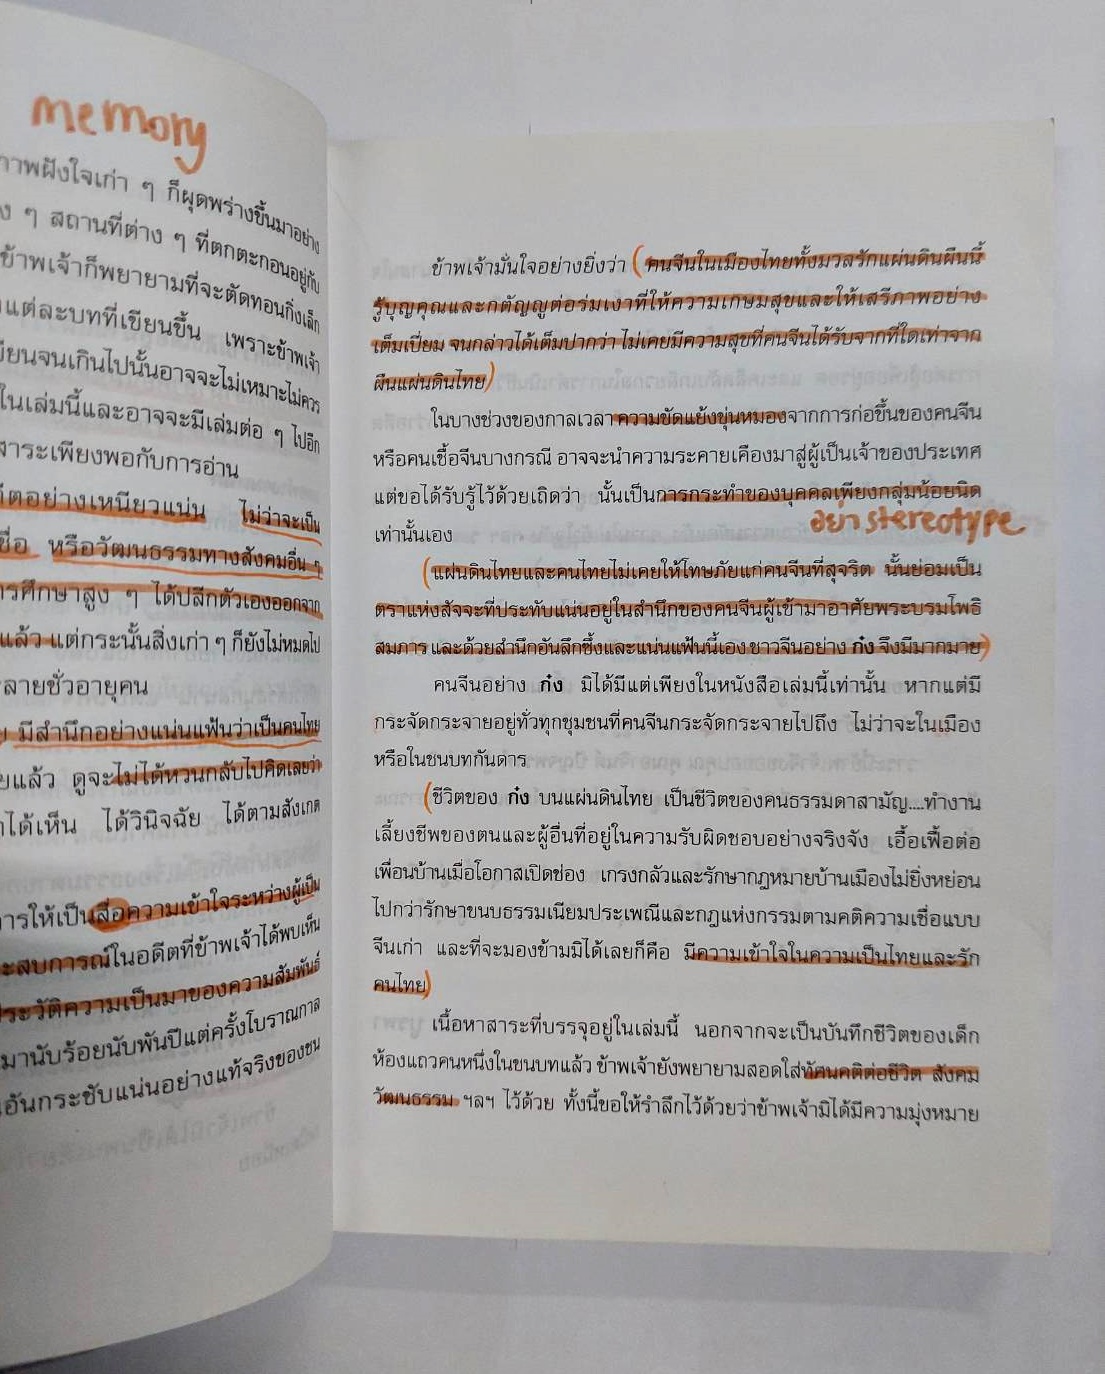 memory
ภาพฝังใจเก่า ๆ ก็ผุดพร่างขึ้นมาอย่าง
ๆ สถานที่ต่าง ๆ ที่ตกตะกอนอยู่กับ
ข้าพเจ้าก็พยายามที่จะตัดทอนกิ่งเล็ก
แต่ละบทที่เขียนขึ้น เพราะข้าพเจ้า
เขียนจนเกินไปนั้นอาจจะไม่เหมาะไม่ควร
ในเล่มนี้และอาจจะมีเล่มต่อ ๆ ไปอีก
สาระเพียงพอกับการอ่าน
อย่างเหนียวแน่น ไม่ว่าจะเป็น
หรือวัฒนธรรมทางสังคมอื่น ๆ
การศึกษาสูง ๆ ได้ปลีกตัวเองออกจาก
แล้ว แต่กระนั้นสิ่งเก่า ๆ ก็ยังไม่หมดไป
หลายชั่วอายุคน
มีสำนึกอย่างแน่นแฟ้นว่าเป็นคนไทย
แล้ว ดูจะไม่ได้หวนกลับไปคิดเลยว่า
ได้เห็น ได้วินิจฉัย ได้ตามสังเกต
การให้เป็นสื่อความเข้าใจระหว่างผู้เป็น
ประสบการณ์ในอดีตที่ข้าพเจ้าได้พบเห็น
ประวัติความเป็นมาของความสัมพันธ์
มานับร้อยนับพันปีแต่ครั้งโบราณกาล
อันกระชับแน่นอย่างแท้จริงของชน
ข้าพเจ้ามั่นใจอย่างยิ่งว่า (คนจีนในเมืองไทยทั้งมวลรักแผ่นดินผืนนี้
รู้บุญคุณและกตัญญูต่อร่มเงาที่ให้ความเกษมสุขและให้เสรีภาพอย่าง
เต็มเปี่ยม จนกล่าวได้เต็มปากว่า ไม่เคยมีความสุขที่คนจีนได้รับจากที่ใดเท่าจาก
ผืนแผ่นดินไทย)
ในบางช่วงของกาลเวลา ความขัดแย้งขุ่นหมองจากการก่อขึ้นของคนจีน
หรือคนเชื้อจีนบางกรณี อาจจะนำความระคายเคืองมาสู่ผู้เป็นเจ้าของประเทศ
แต่ขอได้รับรู้ไว้ด้วยเถิดว่า นั้นเป็นการกระทำของบุคคลเพียงกลุ่มน้อยนิด
อย่า stereotype
เท่านั้นเอง
(แผ่นดินไทยและคนไทยไม่เคยให้โทษภัยแก่คนจีนที่สุจริต นั้นย่อมเป็น
ตราแห่งสัจจะที่ประทับแน่นอยู่ในสำนึกของคนจีนผู้เข้ามาอาศัยพระบรมโพธิ
สมภาร และด้วยสำนึกอันลึกซึ้งและแน่นแฟ้นนี้เอง ชาวจีนอย่าง ก๋ง จึงมีมากมาย)
คนจีนอย่าง ก๋ง มิได้มีแต่เพียงในหนังสือเล่มนี้เท่านั้น หากแต่มี
กระจัดกระจายอยู่ทั่วทุกชุมชนที่คนจีนกระจัดกระจายไปถึง ไม่ว่าจะในเมือง
หรือในชนบทกันดาร
(ชีวิตของ ก๋ง บนแผ่นดินไทย เป็นชีวิตของคนธรรมดาสามัญ....ทำงาน
เลี้ยงชีพของตนและผู้อื่นที่อยู่ในความรับผิดชอบอย่างจริงจัง เอื้อเฟื้อต่อ
เพื่อนบ้านเมื่อโอกาสเปิดช่อง เกรงกลัวและรักษากฎหมายบ้านเมืองไม่ยิ่งหย่อน
ไปกว่ารักษาขนบธรรมเนียมประเพณีและกฎแห่งกรรมตามคติความเชื่อแบบ
จีนเก่า และที่จะมองข้ามมิได้เลยก็คือ มีความเข้าใจในความเป็นไทยและรัก
คนไทย)
เนื้อหาสาระที่บรรจุอยู่ในเล่มนี้ นอกจากจะเป็นบันทึกชีวิตของเด็ก
ห้องแถวคนหนึ่งในชนบทแล้ว ข้าพเจ้ายังพยายามสอดใส่ทัศนคติต่อชีวิต สังคม
วัฒนธรรม ฯลฯ ไว้ด้วย ทั้งนี้ขอให้รำลึกไว้ด้วยว่าข้าพเจ้ามิได้มีความมุ่งหมาย